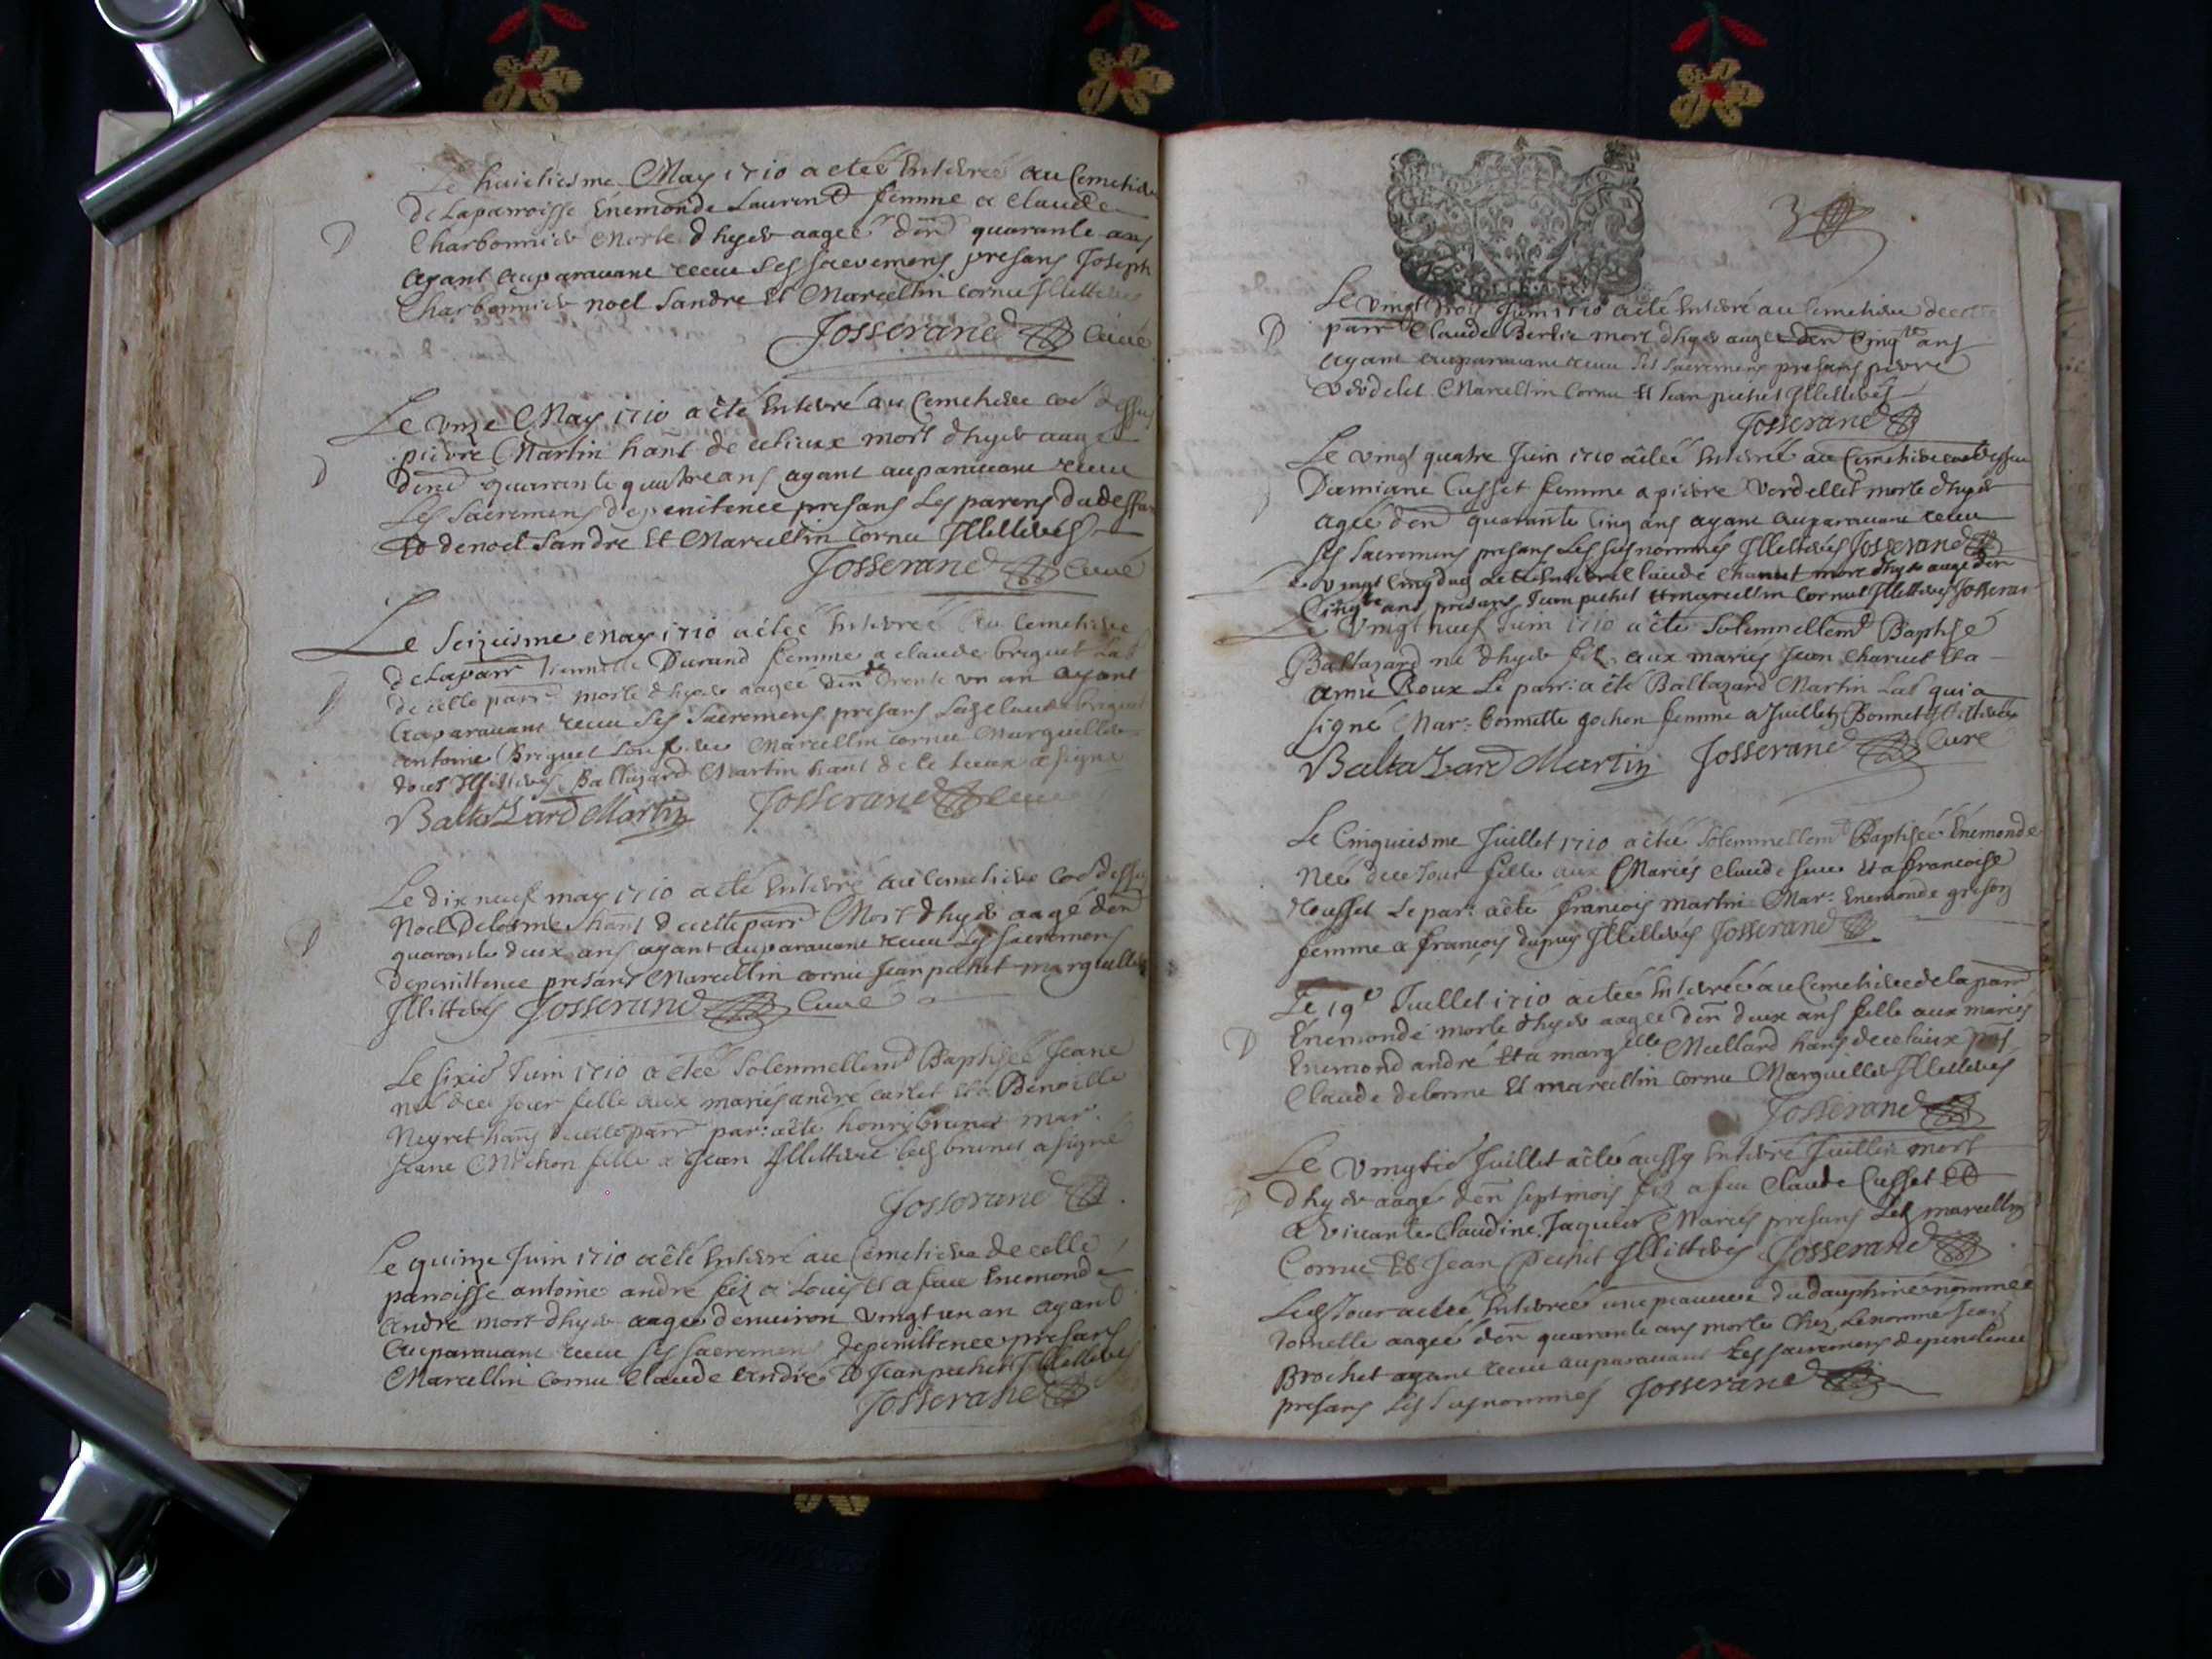 Le huictiesme May 1710 a eteé Enterreé au Cemetiere
de Laparroisse Enemonde Laurend femme a Claude
Charbonnier Morte d'hyer aageé d'en quarante ans
ayant auparavant receu Ses sacremens presans Joseph
Charbonnier noel Sandre Et Marcellin cornu Illetterés
Josserand Curé
Le unze May 1710 a êté Enterré au Cemetiere co dessus
pierre Martin hant de celieux mort d'hyer aagé
denv quarante quatre ans ayant auparavant receu
Les Sacremens depenitence presans Les parens dudeffun
Et denoel Sandre Et Marcellin Cornu Illetterés
Josserand Curé
Le Seiziesme May 1710 a êteé Enterreé au Cemetiere
de Laparr Durand femme a claude briguet Lab
de cette parr morte d'hyer aageé den trente un an ayant
auparavant receu Ses Sacremens presans claude briguet
antoine Briguet Marcellin cornu Marguillier
tous Illetterés Baltazard Martin hant de ce lieux a signe
BaltaZard Martin Josserand Curé
Le dix neuf may 1710 a eté Enterré au Cemetiere co dessus
Noel Delorme hant decetteparr Mort d'hyer aagé den
quarante deux ans ayant auparavant receu Les sacremens
depenittence presans Marcellin cornu Jean pechet marguillier
Illitterés Josserand Curé
Le sixie Juin 1710 a eteé Solemnellemt Baptiseé Jeane
neé dece Jour fille aux mariés andré carlet Et a Benoitte
Neyret hans decetteparr par: a êté henry brunet mar:
Jeane Michon fille a Jean Illitteré led brunet a signé
Josserand
Le quinze Juin 1710 a êté Enterré au Cemetiere decette
parroisse antoine andré filz a Louis Et a feue Enemonde
andré mort d'hyer aagé denviron vingt un an ayant
auparavant receu ses sacremens depenittence presans
Marcellin cornu Claude andré Et Jean pechet Illetterés
Josserand
3
Le vingt trois Juin 1710 a êté Enterré au Cemetiere decette
parr Claude Berlie mort d'hyer aagé den Cinqte ans
ayant auparavant receu Ses Sacremens presans pierre
Verdelet Marcellin Cornu Et Jean pechet Illetterés
Josserand
Le vingt quatre Juin 1710 a êteé Enterreé au Cemetiere co dessus
Damiane Cusset femme a pierre Verdellet morte d'hyer
ageé d'en quarante Cinq ans ayant auparavant receu
ses Sacremens presans Les susnommés Illetterés Josserand
Le vingt Cinq dud a êté Enterré Claude Charvet mort d'hyer aagé den
Cinqte ans presans Jean pechet Et marcellin cornut Illetterés Josseran
Le Vingt neuf Juin 1710 a êté Solemnellemt Baptisé
Baltazard né d'hyer filz aux mariés Jean Charvet Et a
amie Roux Le parr: a êté Baltazard Martin Lab qui a
signé Mar: Bonnette gochon femme a Juillet Bonnet Illitterée
BaltaZard Martin Josserand Curé
Le Cinquiesme Juillet 1710 a êteé Solemnellemt Baptiseé Enemonde
Neé dece Jour fille aux Mariés Claude Et a francoise
Rousset Le par: a êté francois martin Mar: Enemonde grison
femme a francois dupuy Illetterés Josserand
Le 19e Juillet 1710 a eteé Enterreé au Cemetiere delaparr
Enemonde morte d'hyer aageé d'en deux ans fille aux mariés
Enemond andré Et a margtte Meillard hans decelieux pns
Claude delorme Et marcellin cornu Marguillier Illetterés
Josserand
Le vingtie Juillet a êté aussy Enterré Juillin mort
d'hyer aagé d'en sept mois filz a feu Claude Cusset Et
a vivante Claudine Jaquier Mariés presans Led marcellin
Cornu Et Jean Pechet Illitterés Josserand
Led Jour a eteé Enterreé une pauvre du dauphiné nommeé
Tomette aageé d'en quarante ans morte chez Le nommé Jean
Brochet ayant receu auparavant Les sacremens depenitence
presans Les susnommés Josserand